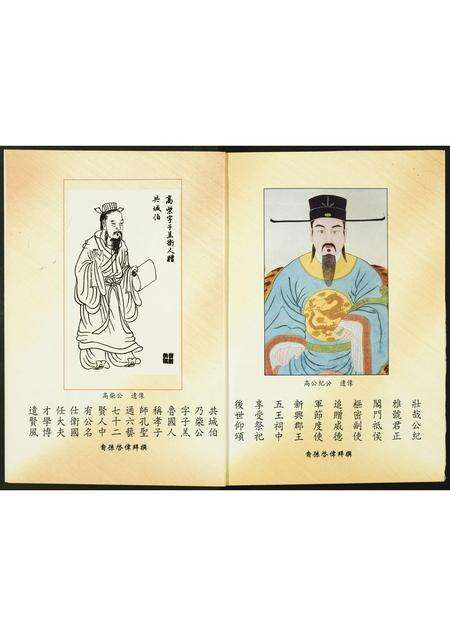 高公紀公 遺像
壯哉公紀
雅號君正
閣門祗侯
樞密副使
追贈威德
軍節度使
新興郡王
五王祠中
享受祭祀
後世仰頌
裔孫啓偉拜撰
高柴字子羔衛人贈
共城伯
高柴公 遺像
共城伯
乃柴公
字子羔
魯國人
稱孝子
師孔聖
通六藝
七十二
賢人中
有公名
仕衛國
任大夫
才學博
遺賢風
裔孫啓偉拜撰